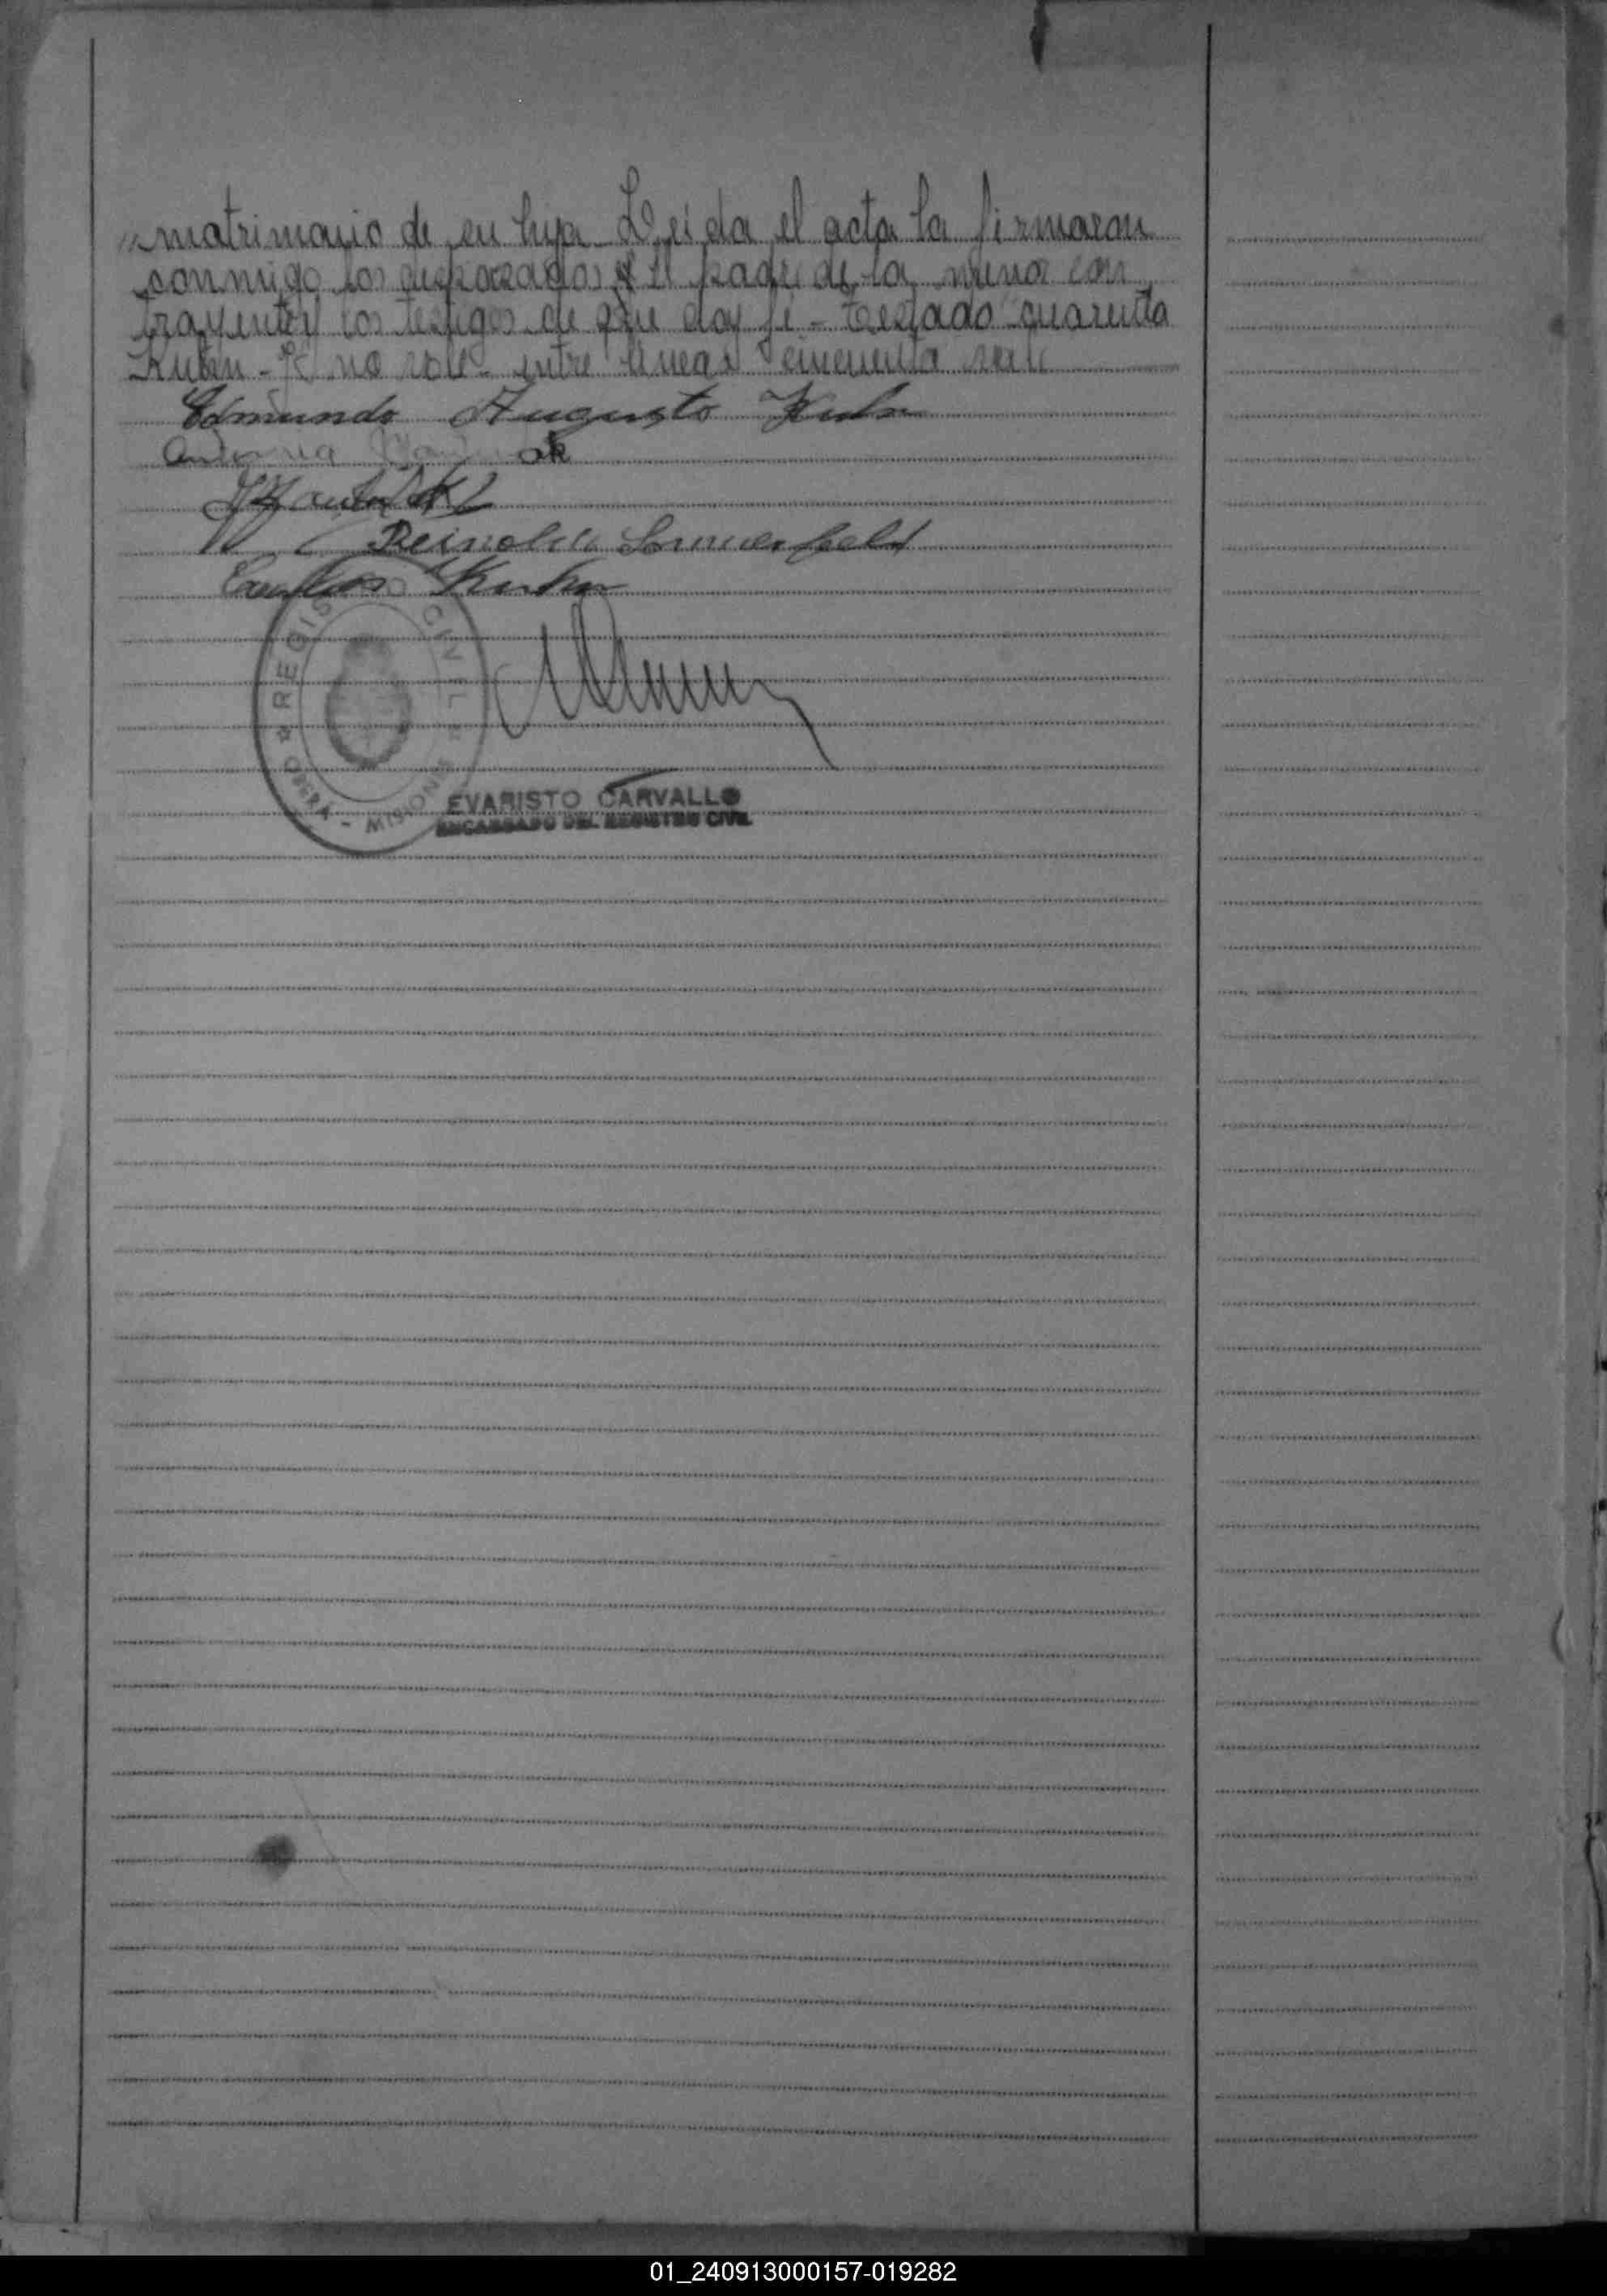 matrimonio de su hija Leida el acta la firmaron
conmigo los desposados y el padre de la menor con
trayente y los testigos de que doy fé - Testado "cuarenta
Kuhn - no vale - entre lineas cincuenta vale
Edmundo Augusto Kuhn
Antonia
Reinoldo Sommerfeld
Carlos Kuhn
REGISTRO CIVIL
OBERA - MISIONES
EVARISTO CARVALLO
ENCARGADO DEL REGISTRO CIVIL
01_240913000157-019282